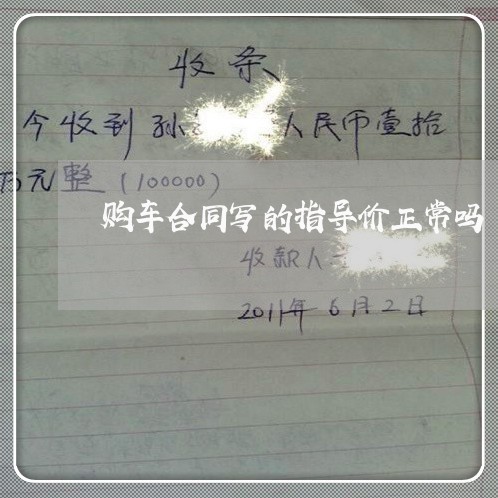 收条
今收到孙 人民币壹拾
万元整(100000)
购车合同写的指导价正常吗
收款人
2011年6月2日